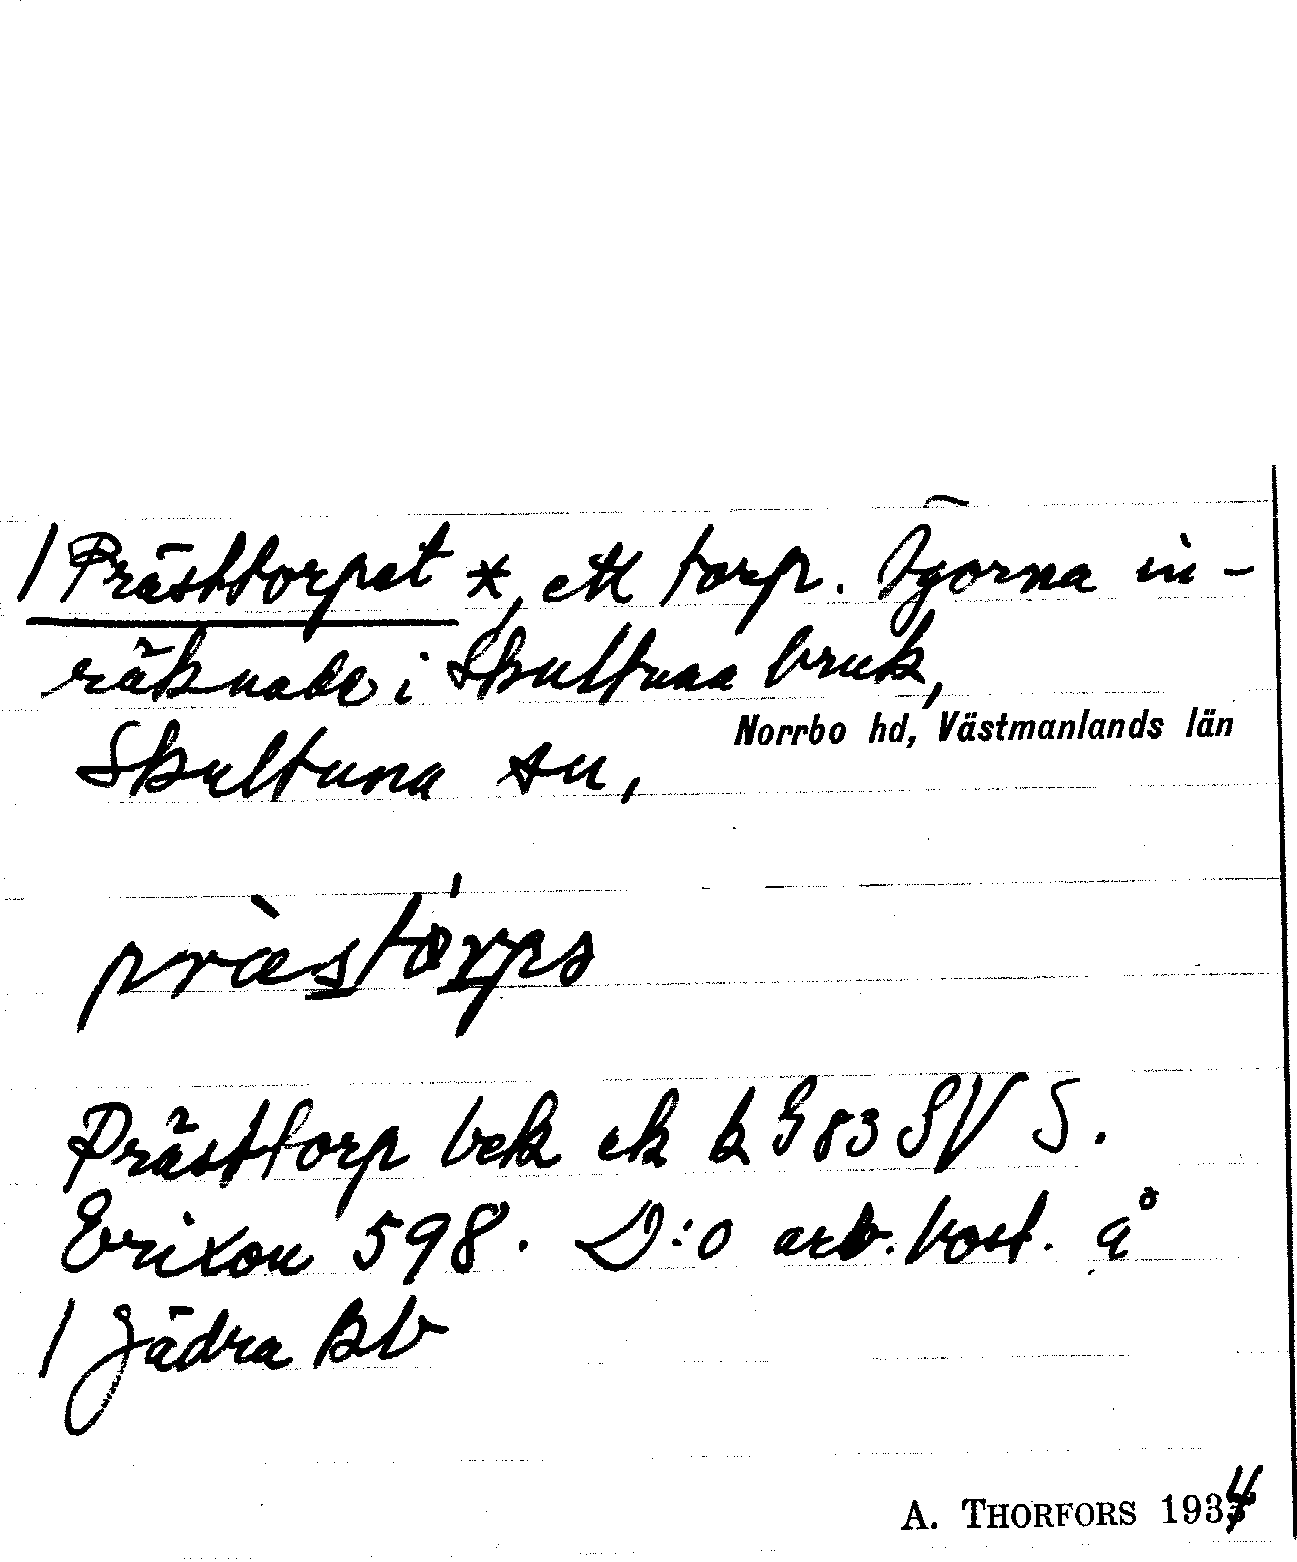 / Prästtorpet *, ett torp. Ägorna in-
räknade i Skultuna bruk,
Skultuna sn,
Norrbo hd, Västmanlands län
præstórps
Prästtorp bek ek bl 983 SV S.
Erixon 598. D:o arb. bost. å
/ Jädra Bb
A. THORFORS 1934